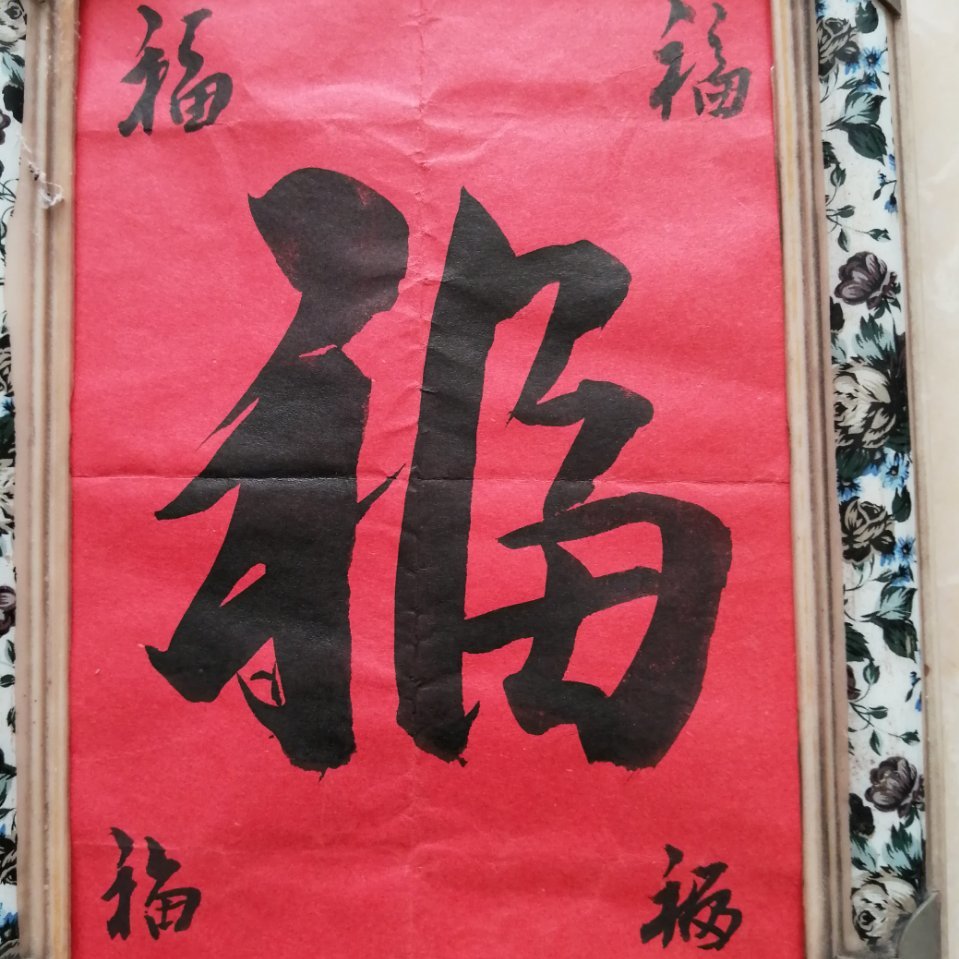 福 福
福
福 福